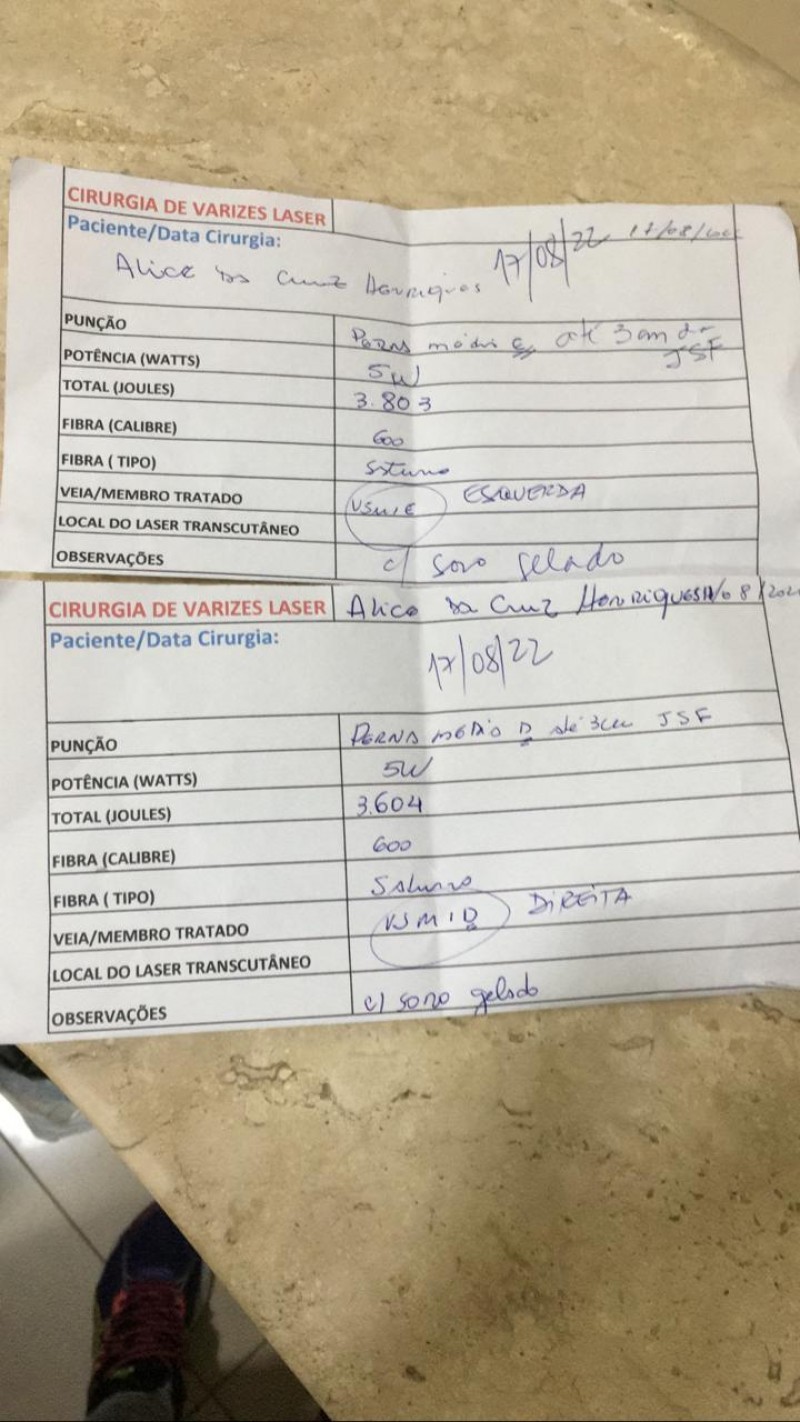 CIRURGIA DE VARIZES LASER
Paciente/Data Cirurgia: 17/08/22
Alice da Cruz Henriques
PUNÇÃO Perna média E até 3 cm da JSF
POTÊNCIA (WATTS) 5W
TOTAL (JOULES) 3.803
FIBRA (CALIBRE) 600
FIBRA ( TIPO)
VEIA/MEMBRO TRATADO VSMIE ESQUERDA
LOCAL DO LASER TRANSCUTÂNEO
OBSERVAÇÕES c/ soro gelado
CIRURGIA DE VARIZES LASER Alice da Cruz Henriques
Paciente/Data Cirurgia: 17/08/22
PUNÇÃO PERNA MÉDIO D até 3cm JSF
POTÊNCIA (WATTS) 5W
TOTAL (JOULES) 3.604
FIBRA (CALIBRE) 600
FIBRA ( TIPO)
VEIA/MEMBRO TRATADO VSMID DIREITA
LOCAL DO LASER TRANSCUTÂNEO
OBSERVAÇÕES c/ soro gelado